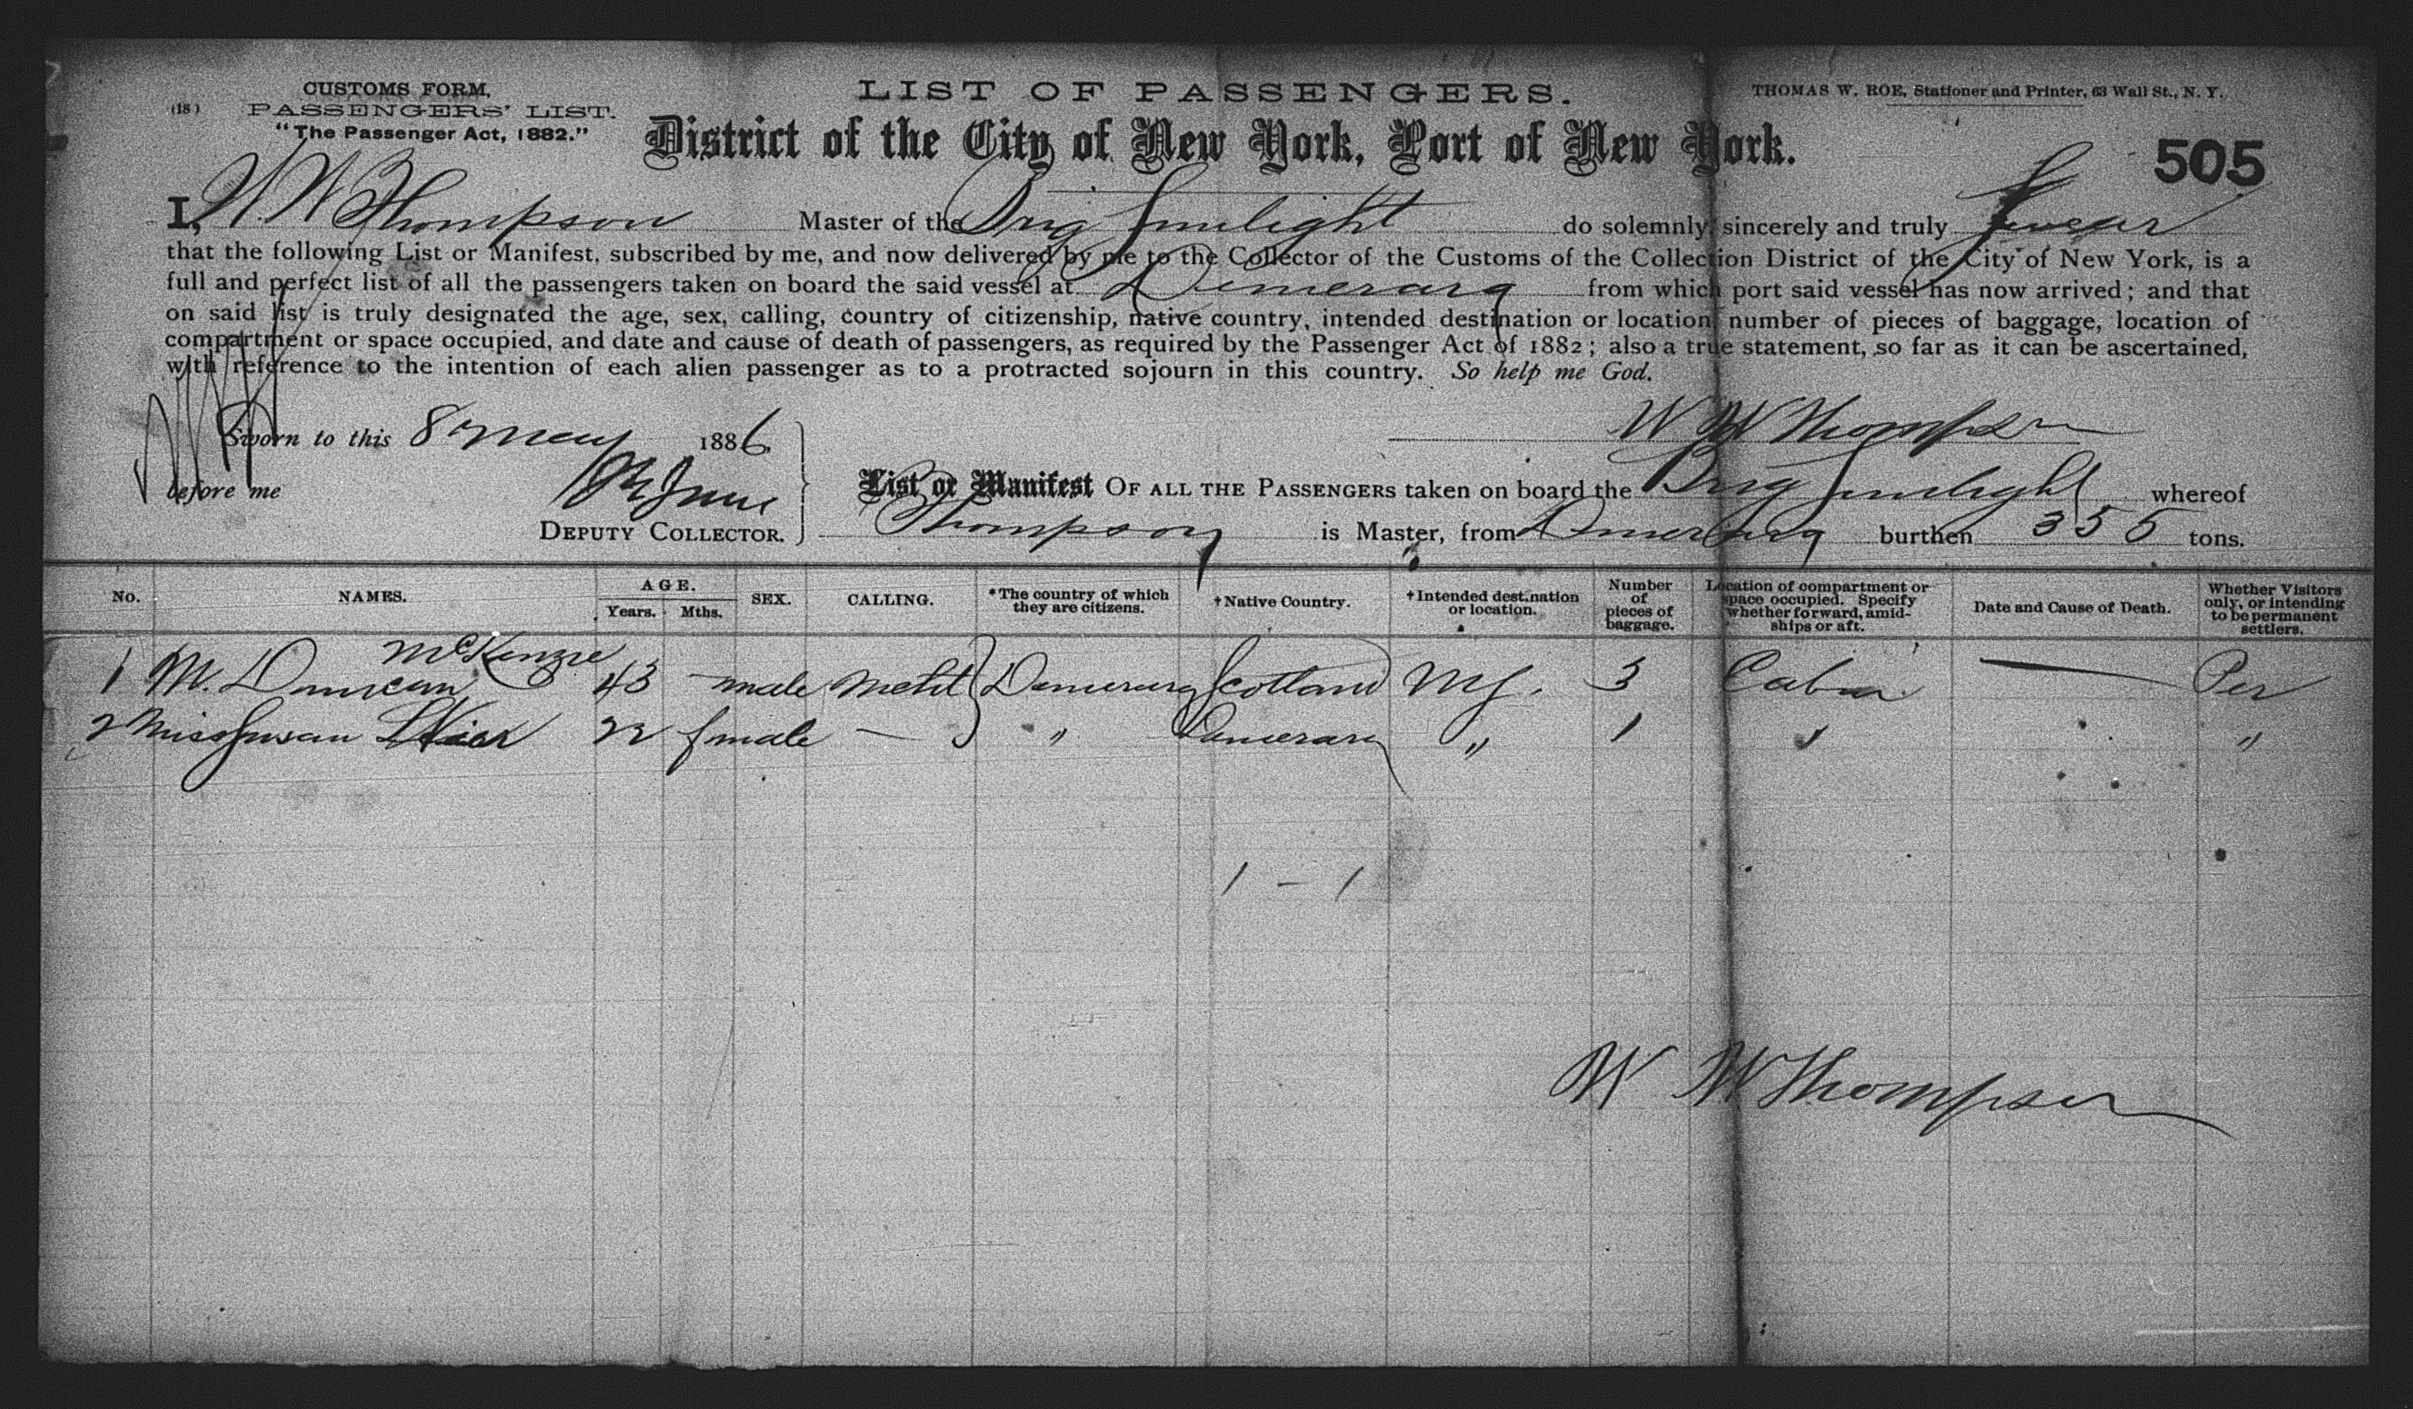 (18)
CUSTOMS FORM,
PASSENGERS' LIST.
"The Passenger Act, 1882."
LIST OF PASSENGERS.
THOMAS W. ROE, Stationer and Printer, 63 Wall St., N. Y.
District of the City of New York, Port of New York.
505
I, W. W Thompson Master of the Brig Sunlight do solemnly, sincerely and truly Swear
that the following List or Manifest, subscribed by me, and now delivered by me to the Collector of the Customs of the Collection District of the City of New York, is a
full and perfect list of all the passengers taken on board the said vessel at Demerara from which port said vessel has now arrived; and that
on said list is truly designated the age, sex, calling, country of citizenship, native country, intended destination or location number of pieces of baggage, location of
compartment or space occupied, and date and cause of death of passengers, as required by the Passenger Act of 1882; also a true statement, so far as it can be ascertained,
with reference to the intention of each alien passenger as to a protracted sojourn in this country. So help me God.
W W Thompson
Sworn to this 8 may 1886.
before me
DEPUTY COLLECTOR.
List or Manifest OF ALL THE PASSENGERS taken on board the Brig Sunlight whereof
Thompson is Master, from Demerara burthen 355 tons.
No. NAMES. AGE. Years. Mths. SEX. CALLING. *The country of which they are citizens. †Native Country. †Intended destination or location. Number of pieces of baggage. Location of compartment or space occupied. Specify whether forward, amid-ships or aft. Date and Cause of Death. Whether Visitors only, or intending to be permanent settlers.
McKenzie
1 M. Duncan 43 male Mcht Demerara Scotland NY. 3 Cabin — Per
2 Miss Susan 22 fmale — " Demerara " 1 " "
1 - 1
W W Thompson